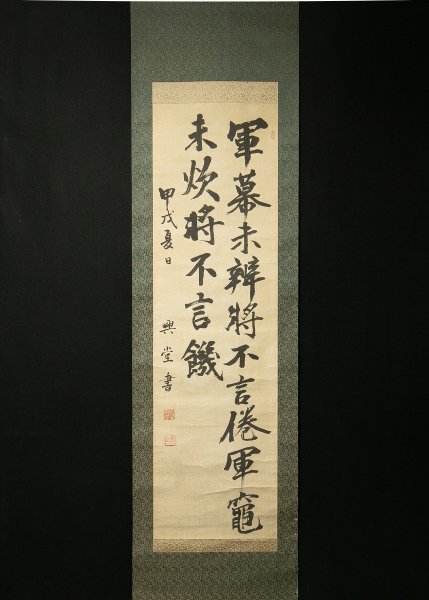 軍幕未辨將不言倦軍竈
未炊將不言饑
甲戌夏日 興堂書